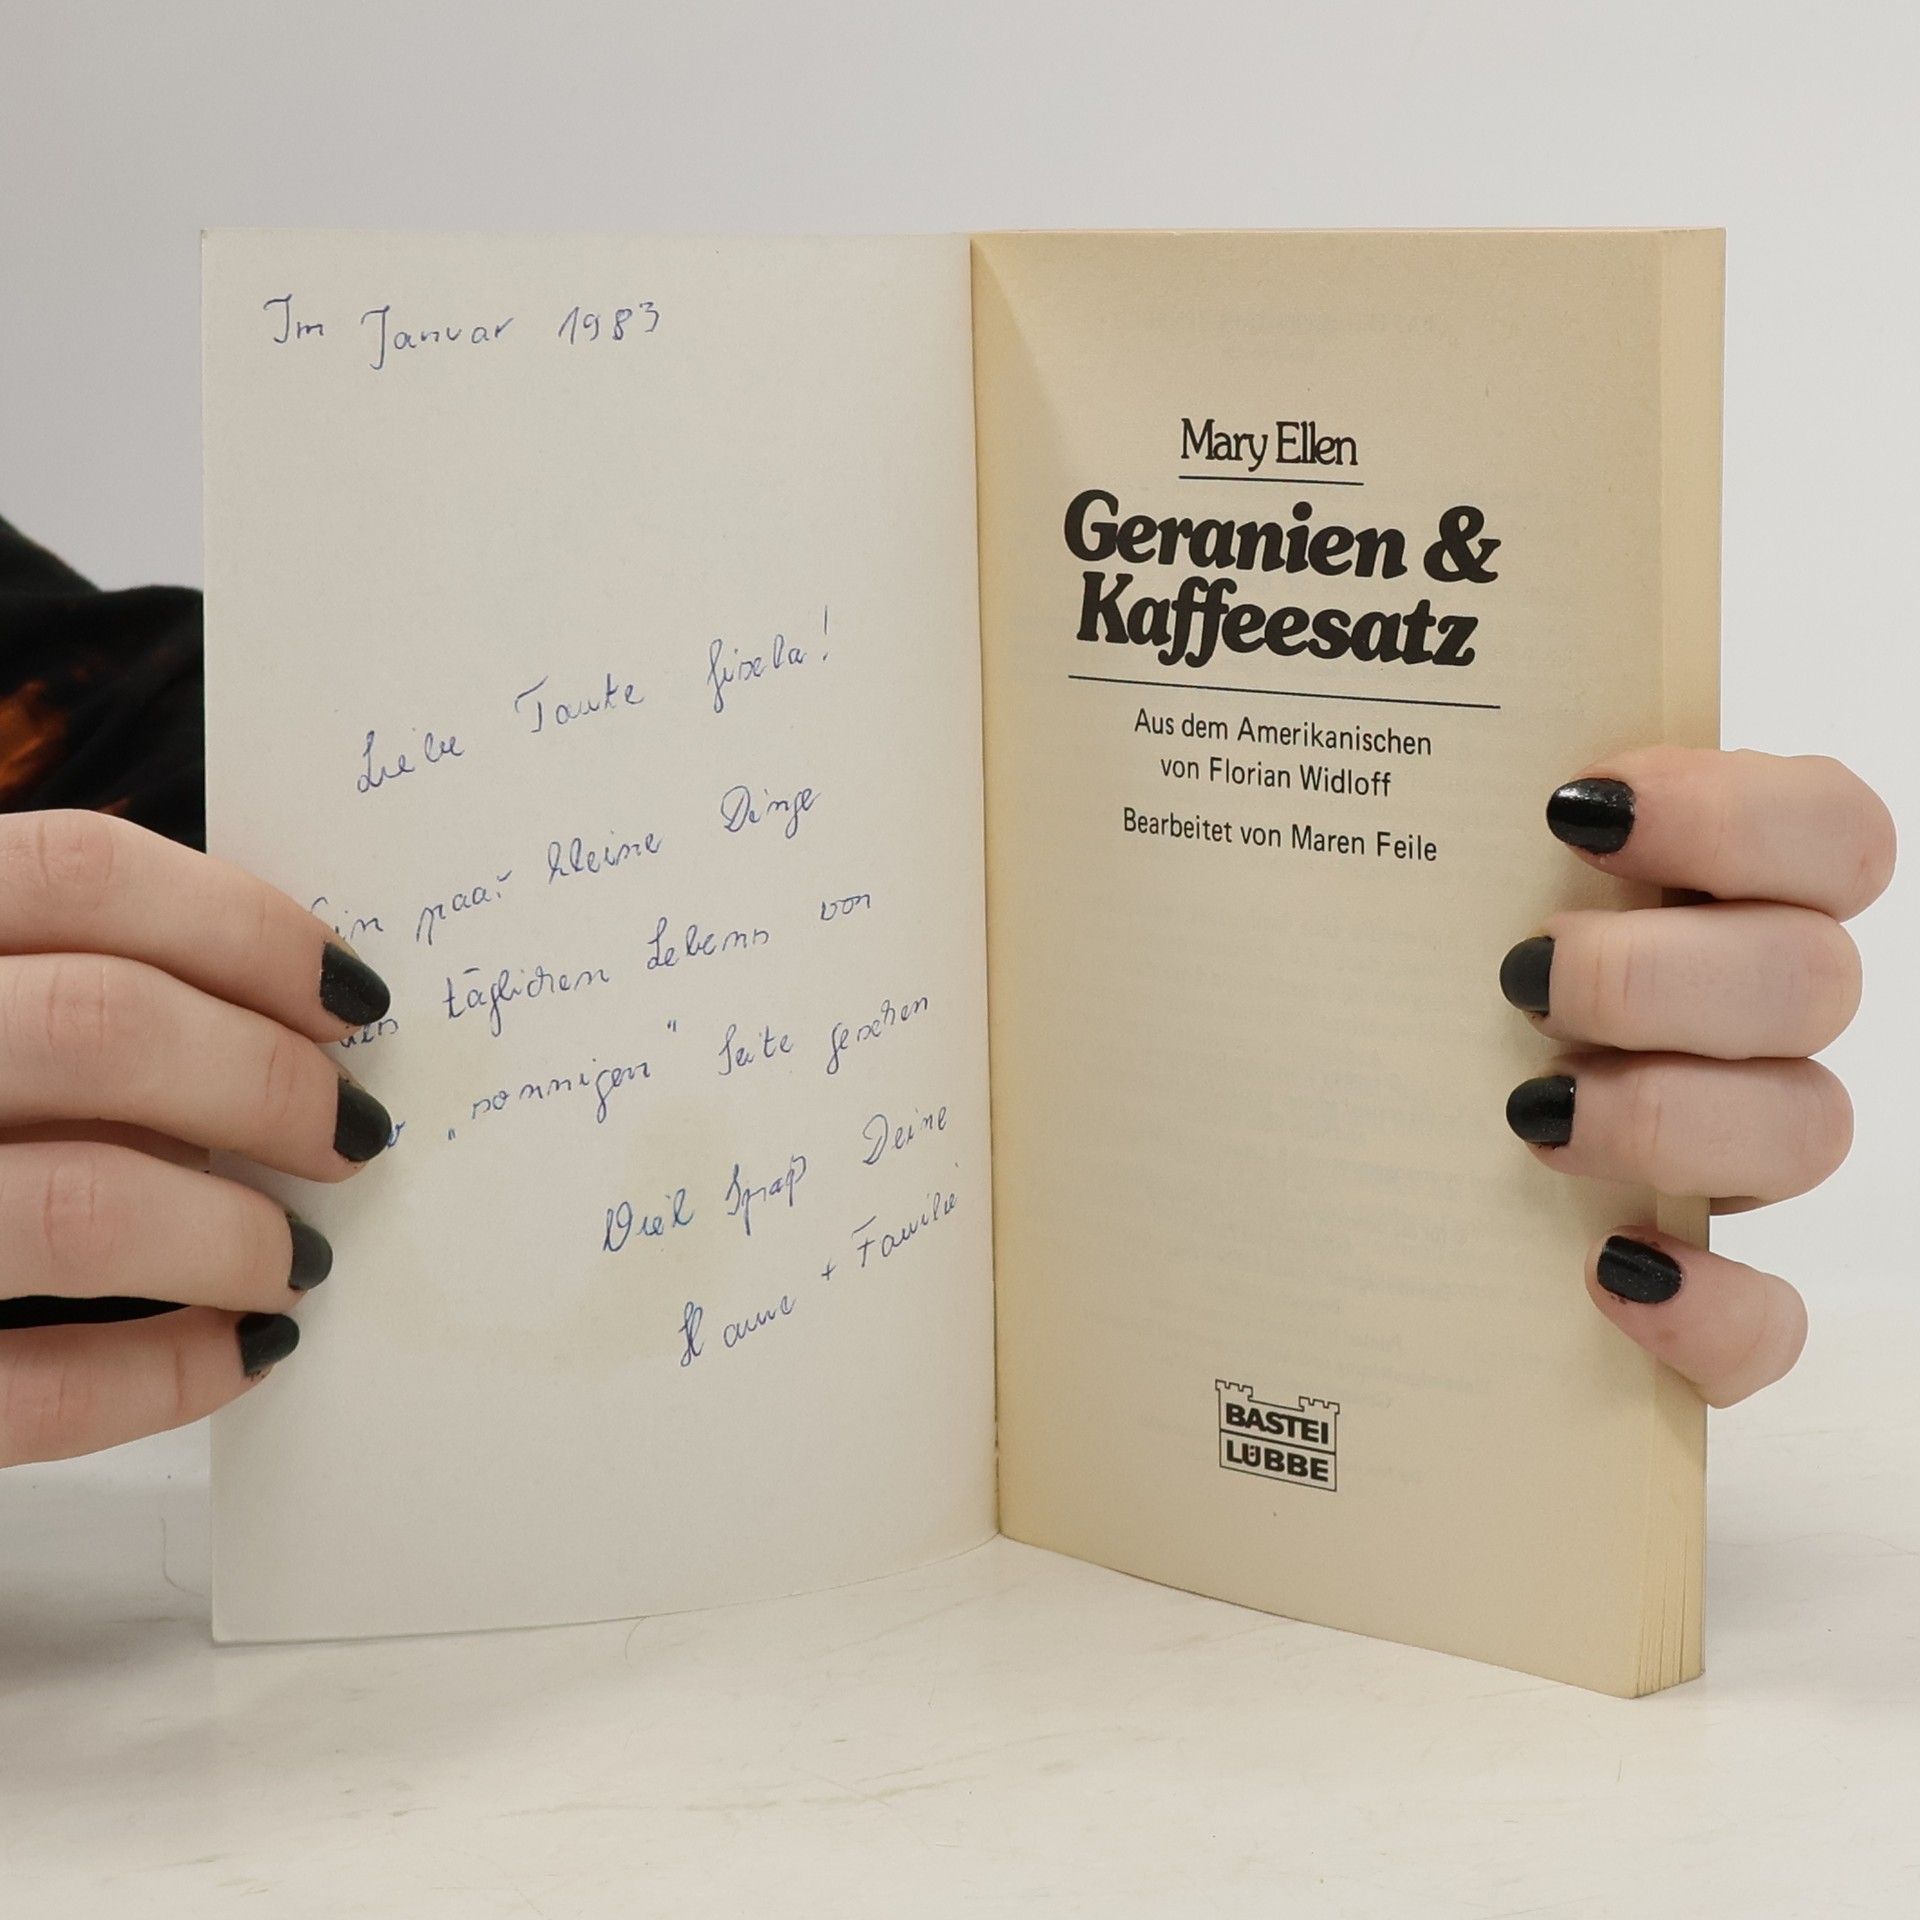 Im Januar 1983
Liebe Tante Gisela!
Ein paar kleine Dinge
des täglichen Lebens von
"sonnigen" Seite gesehen
Viel Spaß Deine
Hanne + Familie
Mary Ellen
Geranien &
Kaffeesatz
Aus dem Amerikanischen
von Florian Widloff
Bearbeitet von Maren Feile
BASTEI
LÜBBE